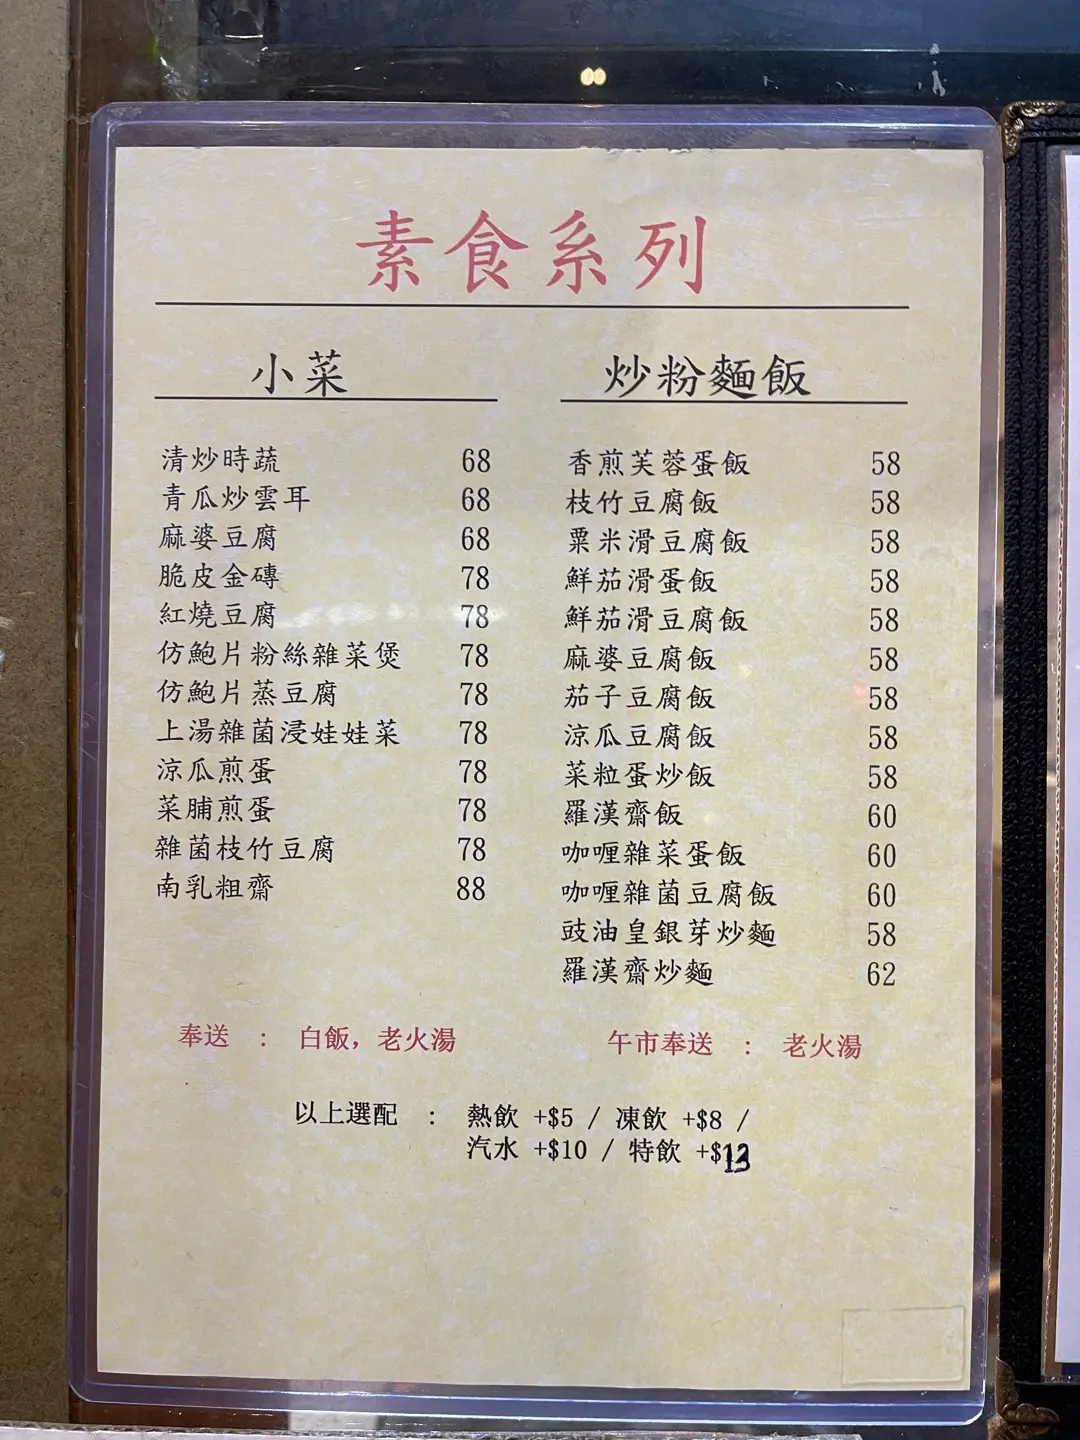 素食系列
小菜
清炒時蔬 68
青瓜炒雲耳 68
麻婆豆腐 68
脆皮金磚 78
紅燒豆腐 78
仿鮑片粉絲雜菜煲 78
仿鮑片蒸豆腐 78
上湯雜菌浸娃娃菜 78
涼瓜煎蛋 78
菜脯煎蛋 78
雜菌枝竹豆腐 78
南乳粗齋 88
奉送 : 白飯，老火湯
炒粉麵飯
香煎芙蓉蛋飯 58
枝竹豆腐飯 58
粟米滑豆腐飯 58
鮮茄滑蛋飯 58
鮮茄滑豆腐飯 58
麻婆豆腐飯 58
茄子豆腐飯 58
涼瓜豆腐飯 58
菜粒蛋炒飯 58
羅漢齋飯 60
咖喱雜菜蛋飯 60
咖喱雜菌豆腐飯 60
豉油皇銀芽炒麵 58
羅漢齋炒麵 62
午市奉送 : 老火湯
以上選配 : 熱飲 +$5 / 凍飲 +$8 /
汽水 +$10 / 特飲 +$13